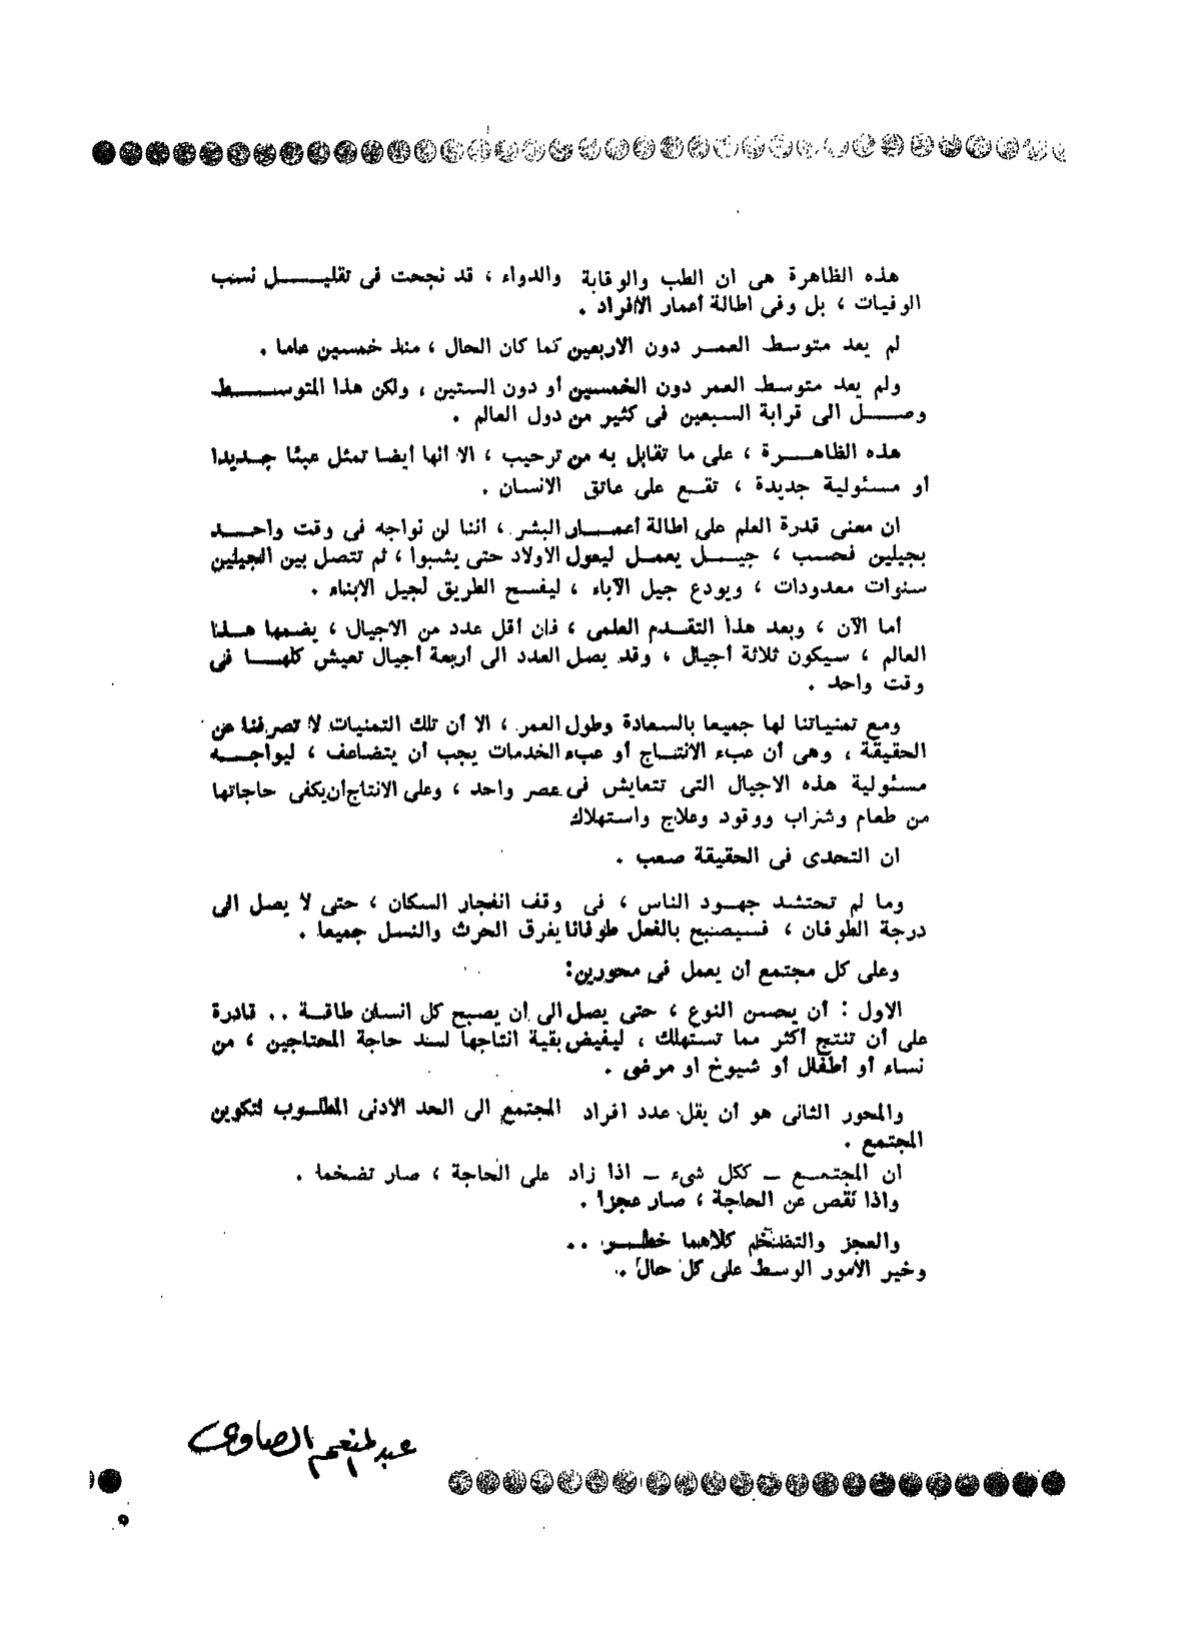 هذه الظاهرة هى ان الطب والوقاية والدواء ، قد نجحت فى تقليل نسب
الوفيات ، بل وفى اطالة أعمار الأفراد .
لم يعد متوسط العمر دون الاربعين كما كان الحال ، منذ خمسين عاما .
ولم يعد متوسط العمر دون الخمسين أو دون الستين ، ولكن هذا المتوسط
وصل الى قرابة السبعين فى كثير من دول العالم .
هذه الظاهرة ، على ما تقابل به من ترحيب ، الا انها أيضا تمثل عبئا جديدا
أو مسئولية جديدة ، تقع على عاتق الانسان .
ان معنى قدرة العلم على اطالة أعمار البشر ، أننا لن نواجه فى وقت واحد
بجيلين فحسب ، جيل يعمل ليعول الاولاد حتى يشبوا ، ثم تتصل بين الجيلين
سنوات معدودات ، ويودع جيل الآباء ، ليفسح الطريق لجيل الابناء .
أما الآن ، وبعد هذا التقدم العلمى ، فان أقل عدد من الاجيال ، يضمها هذا
العالم ، سيكون ثلاثة أجيال ، وقد يصل العدد الى أربعة أجيال تعيش كلها فى
وقت واحد .
ومع تمنياتنا لها جميعا بالسعادة وطول العمر ، الا أن تلك التمنيات لا تصرفنا عن
الحقيقة ، وهى أن عبء الانتاج أو عبء الخدمات يجب أن يتضاعف ، ليواجه
مسئولية هذه الاجيال التى تتعايش فى عصر واحد ، وعلى الانتاج أن يكفى حاجاتها
من طعام وشراب ووقود وعلاج واستهلاك
ان التحدى فى الحقيقة صعب .
وما لم تحتشد جهود الناس ، فى وقف انفجار السكان ، حتى لا يصل الى
درجة الطوفان ، فسيصبح بالفعل طوفانا يغرق الحرث والنسل جميعا .
وعلى كل مجتمع أن يعمل فى محورين:
الاول : أن يحسن النوع ، حتى يصل الى أن يصبح كل انسان طاقة .. قادرة
على أن تنتج أكثر مما تستهلك ، ليفيض بقية انتاجها لسد حاجة المحتاجين ، من
نساء أو أطفال أو شيوخ أو مرضى .
والمحور الثانى هو أن يقل عدد افراد المجتمع الى الحد الادنى المطلوب لتكوين
المجتمع .
ان المجتمع – ككل شىء – اذا زاد على الحاجة ، صار تضخما .
واذا نقص عن الحاجة ، صار عجزا .
والعجز والتضخم كلاهما خطر ..
وخير الأمور الوسط على كل حال .
عبد المنعم الصاوى
٥